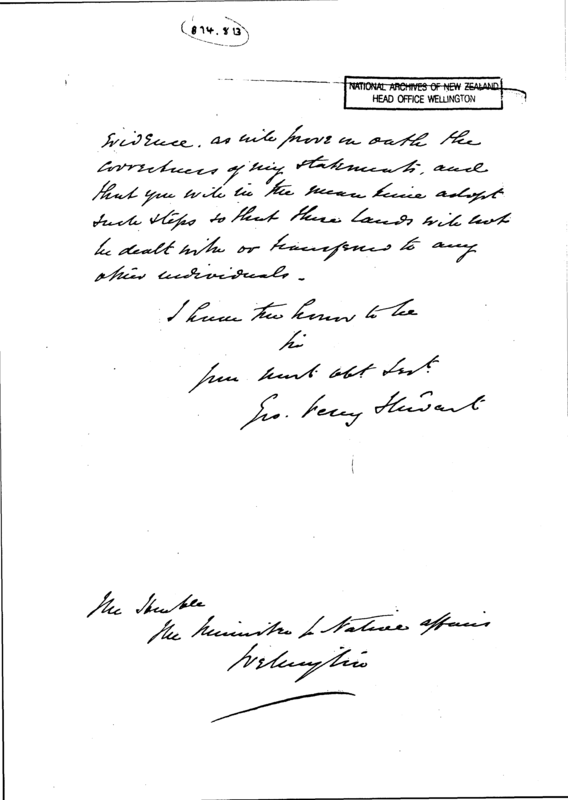 874.813
NATIONAL ARCHIVES OF NEW ZEALAND
HEAD OFFICE WELLINGTON
evidence. as will prove on oath the
correctness of my statements, and
that you will in the mean time adopt
such steps so that these lands will not
be dealt with or transferred to any
other individuals.
I have the honor to be
Sir
your most obt Servt.
Geo. Vesey Stewart
The Honble
The Minister for Native affairs
Wellington